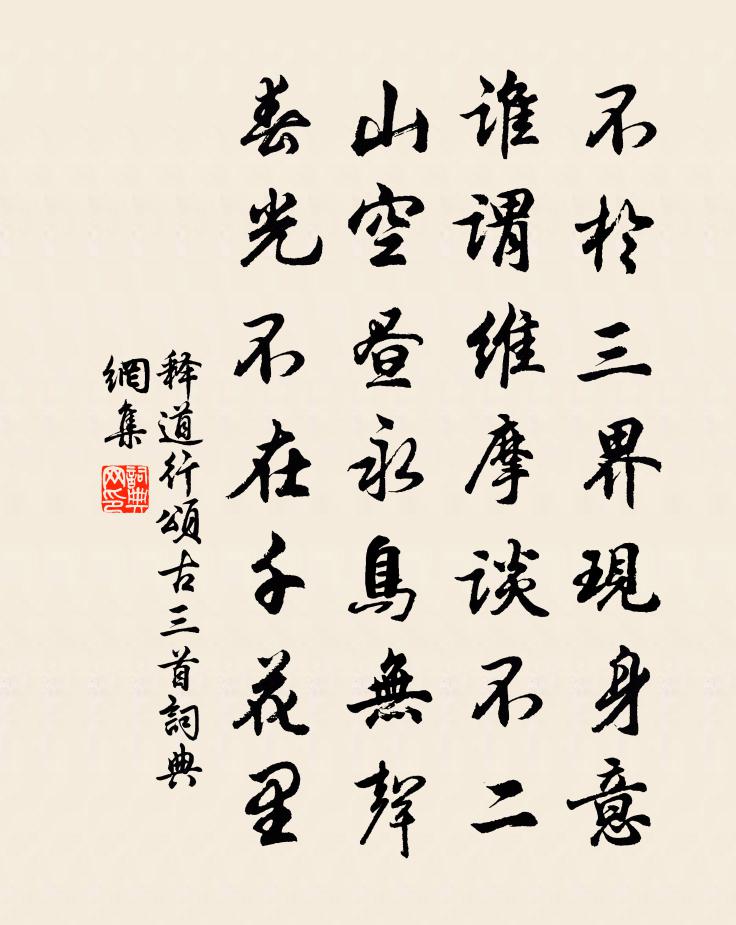 不於三界現身意
谁謂維摩談不二
山空昼永鳥無聲
春光不在千花里
释道行頌古三首詞典
網集
詞典網印